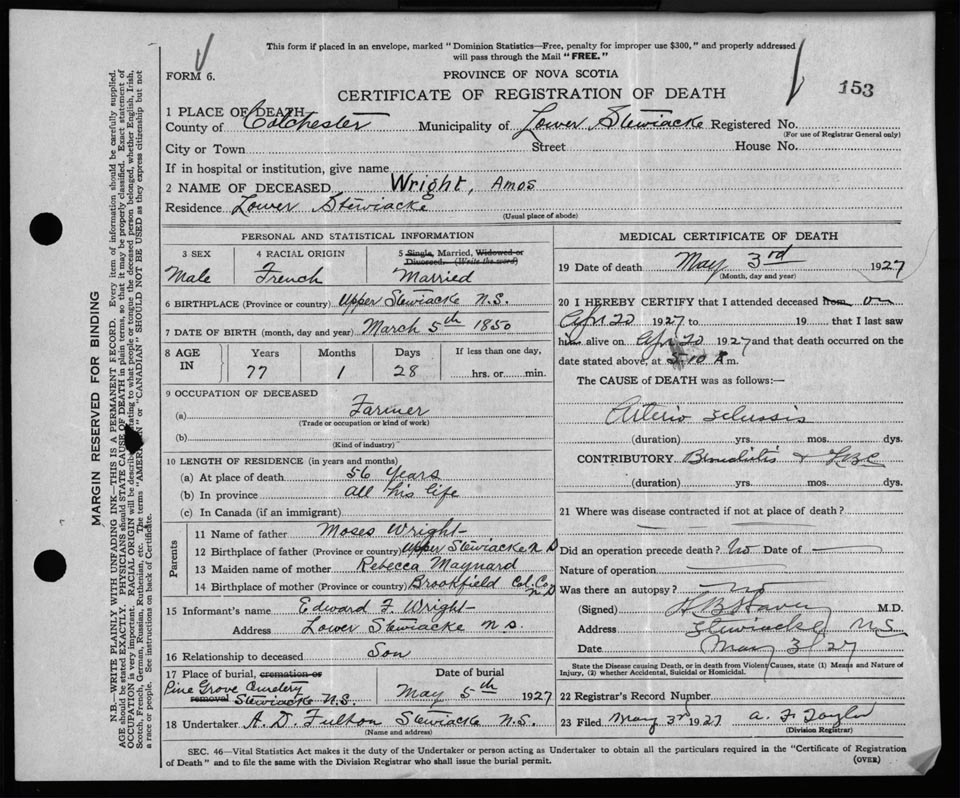 This form if placed in an envelope, marked "Dominion Statistics—Free, penalty for improper use $300," and properly addressed
will pass through the Mail "FREE."
FORM 6.
PROVINCE OF NOVA SCOTIA
CERTIFICATE OF REGISTRATION OF DEATH
153
1 PLACE OF DEATH
County of Colchester Municipality of Lower Stewiacke Registered No.
(For use of Registrar General only)
City or Town Street House No.
If in hospital or institution, give name
2 NAME OF DECEASED Wright, Amos
Residence Lower Stewiacke
(Usual place of abode)
PERSONAL AND STATISTICAL INFORMATION
3 SEX 4 RACIAL ORIGIN 5 Single, Married, Widowed or Divorced. (Write the word)
Male French Married
6 BIRTHPLACE (Province or country) Upper Stewiacke N.S.
7 DATE OF BIRTH (month, day and year) March 5th 1850
8 AGE IN Years Months Days If less than one day,
77 1 28 hrs. or min.
9 OCCUPATION OF DECEASED
(a) Farmer
(Trade or occupation or kind of work)
(b)
(Kind of industry)
10 LENGTH OF RESIDENCE (in years and months)
(a) At place of death 56 Years
(b) In province all his life
(c) In Canada (if an immigrant)
Parents
11 Name of father Moses Wright
12 Birthplace of father (Province or country) Upper Stewiacke N S
13 Maiden name of mother Rebecca Maynard
14 Birthplace of mother (Province or country) Brookfield Col. Co. N S
15 Informant's name Edward F. Wright
Address Lower Stewiacke N.S.
16 Relationship to deceased Son
17 Place of burial, cremation or removal Date of burial
Pine Grove Cemetery
Stewiacke N.S. May 5th 1927
18 Undertaker A. D. Fulton Stewiacke N.S.
(Name and address)
MEDICAL CERTIFICATE OF DEATH
19 Date of death May 3rd 1927
(Month, day and year)
20 I HEREBY CERTIFY that I attended deceased from on
Apr 20 1927 to 19 that I last saw
him alive on Apr 20 1927 and that death occurred on the
date stated above, at 5-10 A m.
The CAUSE of DEATH was as follows:—
Arterio Sclerosis
(duration) yrs. mos. dys.
CONTRIBUTORY
(duration) yrs. mos. dys.
21 Where was disease contracted if not at place of death?
Did an operation precede death? No Date of
Nature of operation
Was there an autopsy? No
(Signed) M.D.
Address Stewiacke N.S
Date May 3/27
State the Disease causing Death, or in death from Violent Causes, state (1) Means and Nature of
Injury, (2) whether Accidental, Suicidal or Homicidal.
22 Registrar's Record Number
23 Filed May 3rd 1927 A. F. Taylor
(Division Registrar)
SEC. 46—Vital Statistics Act makes it the duty of the Undertaker or person acting as Undertaker to obtain all the particulars required in the "Certificate of Registration
of Death" and to file the same with the Division Registrar who shall issue the burial permit.
(OVER)
MARGIN RESERVED FOR BINDING
N.B.—WRITE PLAINLY WITH UNFADING INK—THIS IS A PERMANENT RECORD. Every item of information should be carefully supplied.
AGE should be stated EXACTLY. PHYSICIANS should STATE CAUSE OF DEATH in plain terms, so that it may be properly classified. Exact statement of
OCCUPATION is very important. RACIAL ORIGIN will be described to what people or tongue the deceased person belonged, whether English, Irish,
Scotch, French, German, Russian, Ruthenian, etc. The terms "AMERICAN" or "CANADIAN" SHOULD NOT BE USED as they express citizenship but not
a race or people. See instructions on back of Certificate.